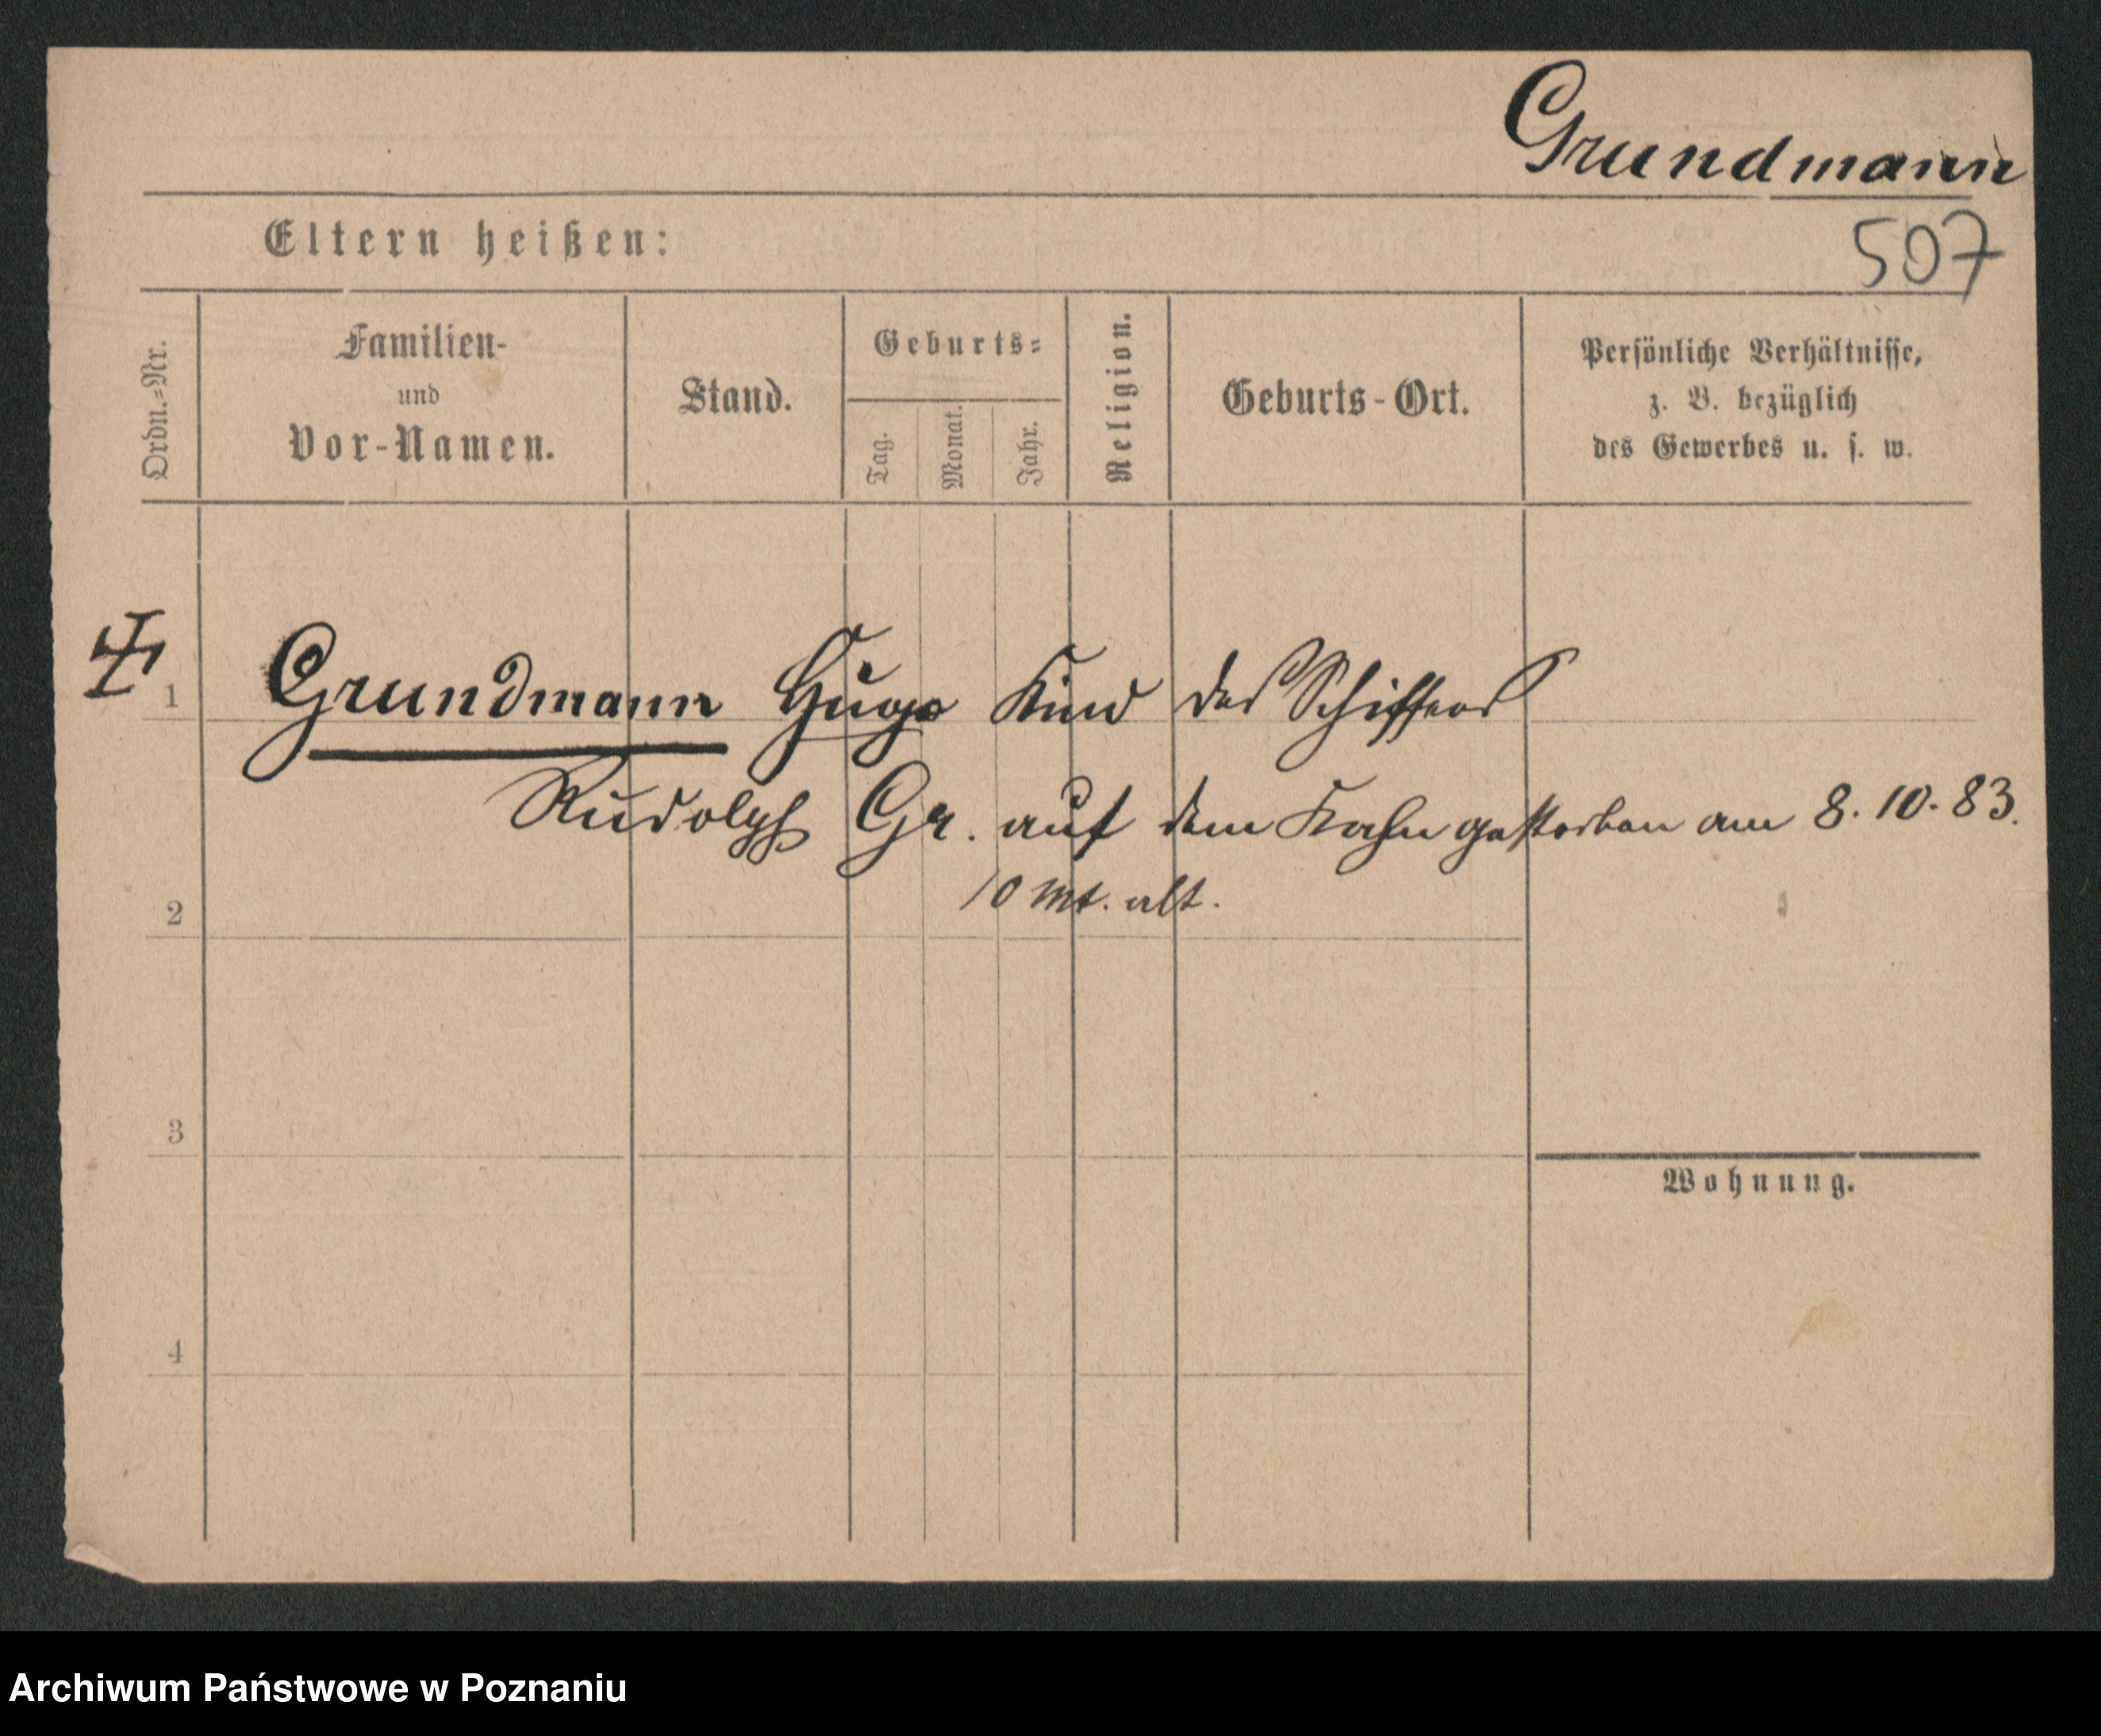 Grundmann
Eltern heißen:
507
Ordn.=Nr.
Familien-
und
Vor-Namen.
Stand.
Geburts=
Tag.
Monat.
Jahr.
Religion.
Geburts-Ort.
Persönliche Verhältnisse,
z. B. bezüglich
des Gewerbes u. s. w.
1
Grundmann Hugo Kind des Schiffers
Rudolph Gr. auf dem Kahn gestorben am 8. 10. 83.
10 Mt. alt.
2
3
Wohnung.
4
Archiwum Państwowe w Poznaniu